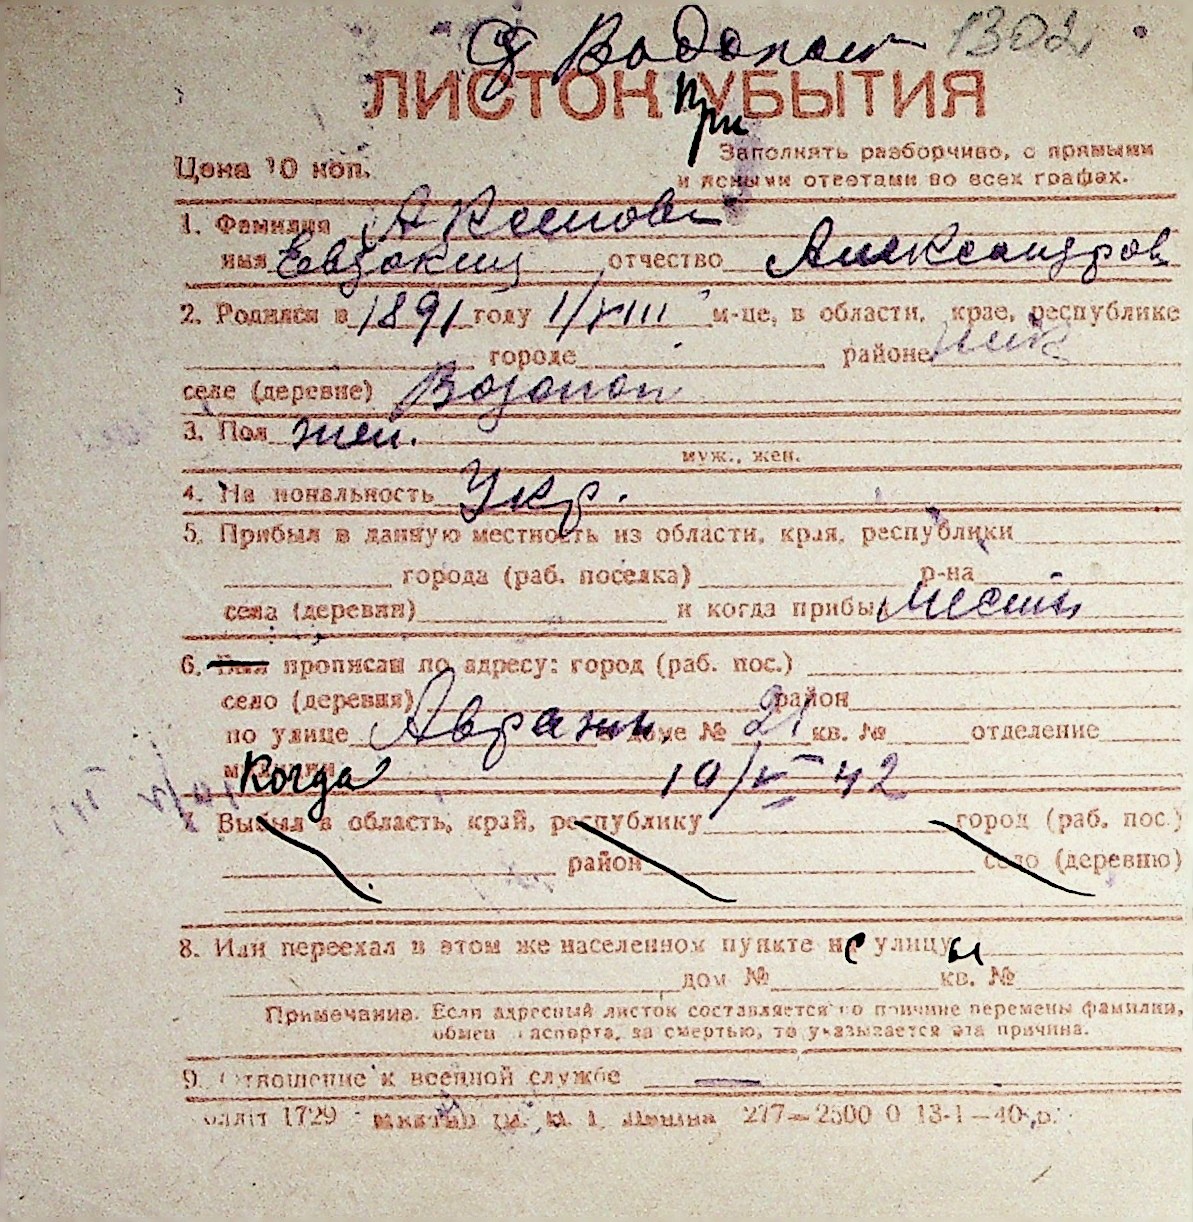 Водопой 1302
ЛИСТОК при УБЫТИЯ
Цена 10 коп.
Заполнять разборчиво, с прямыми
и ясными ответами во всех графах.
1. Фамилия
имя Евдокия отчество Александров
2. Родился в 1891 году 1/VIII м-це, в области, крае, республике
городе районе Ник
селе (деревне) Водопой
3. Пол жен.
муж., жен.
4. Национальность Укр.
5. Прибыл в данную местность из области, края, республики
города (раб. поселка) р-на
села (деревни) и когда прибыл местн
6. Был прописан по адресу: город (раб. пос.)
село (деревня) район
по улице в доме № 21 кв. № отделение
милиции Когда 19/V 42
7. Выбыл в область, край, республику город (раб. пос.)
район село (деревню)
8. Или переехал в этом же населенном пункте нс улицуы
дом № кв. №
Примечание. Если адресный листок составляется по причине перемены фамилии,
обмен паспорта, за смертью, то указывается эта причина.
9. Отношение к военной службе —
1729 277—2500 0 13-1—40 р.